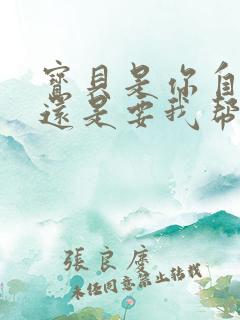 寶貝是你自
還是要我幫
張良庭
未任同意禁止转载